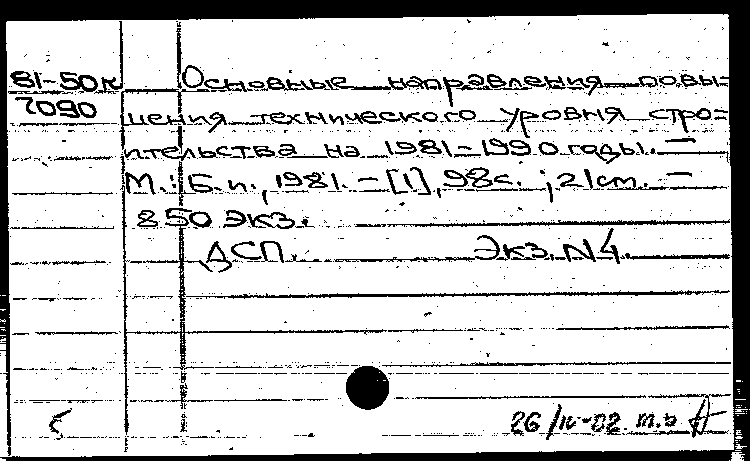 81-50к Основные направления повы-
7090 шения технического уровня стро-
ительства на 1981-1990 годы. —
М.: Б.и., 1981. — [1], 98с. ; 21 см. —
850 экз.
ДСП. Экз. N4.
5 26/IV-82